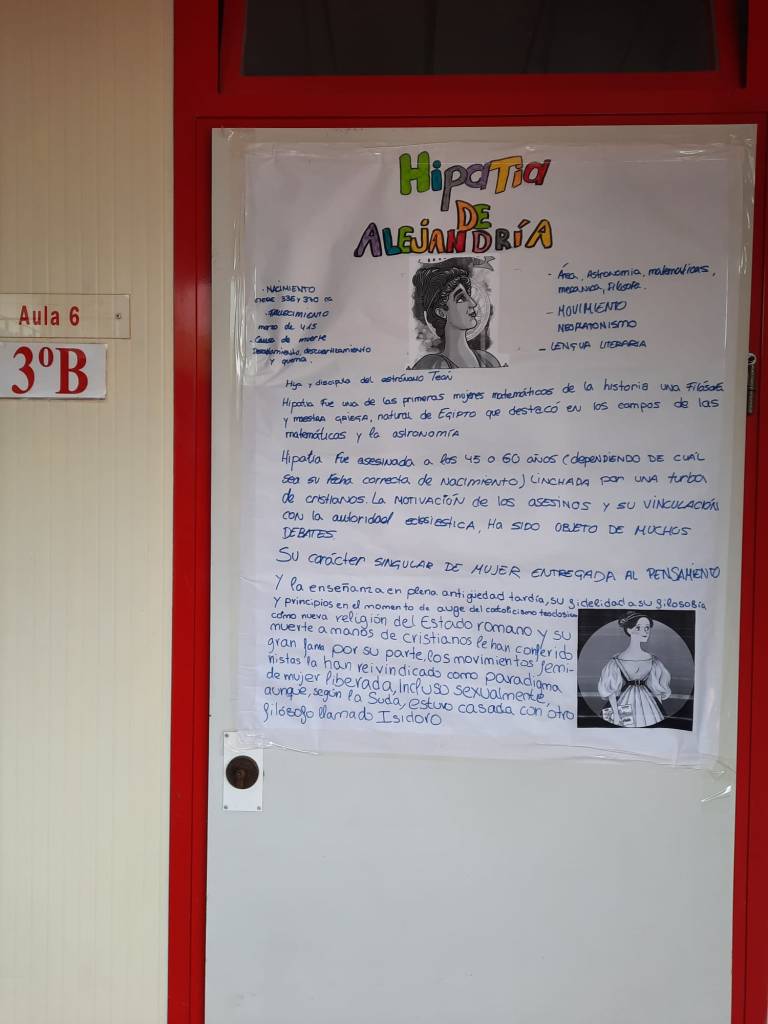 Hipatia
DE
ALEJANDRÍA
- NACIMIENTO
entre 335 y 370 
- FALLECIMIENTO
marzo de 415
- Causa de muerte
Desollamiento, descuartizamiento
y quema.
- Área, Astronomia, matematicas,
mecanica, Filosofa.
- MOVIMIENTO
NEOPLATONISMO
- LENGUA LITERARIA
Aula 6
3ºB
Hija y discipula del astrónomo Teón
Hipatia fue una de las primeras mujeres matemáticas de la historia una Filósofa
y maestra GRIEGA, natural de EGIPTO que destacó en los campos de las
matemáticas y la astronomía
Hipatia Fue asesinada a los 45 o 60 años (dependiendo DE CUÁL
sea su fecha correcta de NACIMIENTO) LINCHADA por UNA turba
de cristianos. La MOTIVACIÓN de los ASESINOS Y SU VINCULACIÓN
CON la autoridad, HA SIDO OBJETO DE MUCHOS
DEBATES
SU carácter SINGULAR DE MUJER ENTREGADA AL PENSAMIENTO
Y la enseñanza en plena antigüedad tardía, su fidelidad a su filosofía
Y principios en el momento de auge del catolicismo teodosiano
como nueva religión del Estado romano y su
muerte a manos de cristianos le han conferido
gran fama por su parte, los movimientos femi-
nistas la han reivindicado como paradigma
de mujer liberada, Incluso sexualmente,
aunque, según la Suda, estuvo casada con otro
filósofo llamado Isidoro